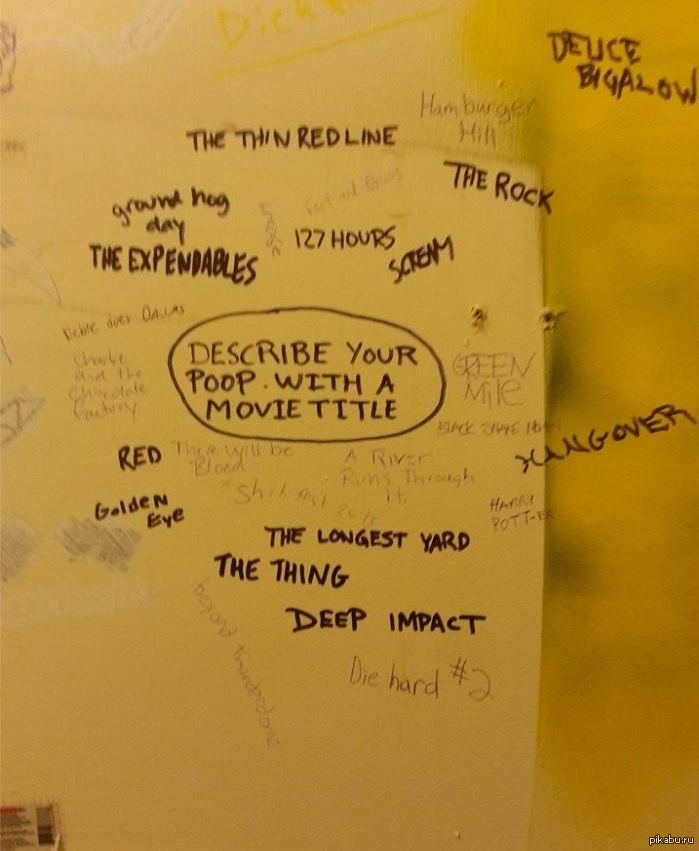 DEUCE
BIGALOW
Hamburger
Hill
THE THIN RED LINE
THE ROCK
ground hog
day
127 HOURS
SCREAM
THE EXPENDABLES
Debie does DALLAS
DESCRIBE YOUR
POOP. WITH A
MOVIE TITLE
Charlie
and the
Chocolate
Factory
GREEN
Mile
BLACK SNAKE
HANGOVER
RED
There will be
Blood
A River
Runs Through
it
Golden
Eye
HARRY
POTT-ER
THE LONGEST YARD
THE THING
beyond thunderdome
DEEP IMPACT
Die hard #2
pikabu.ru